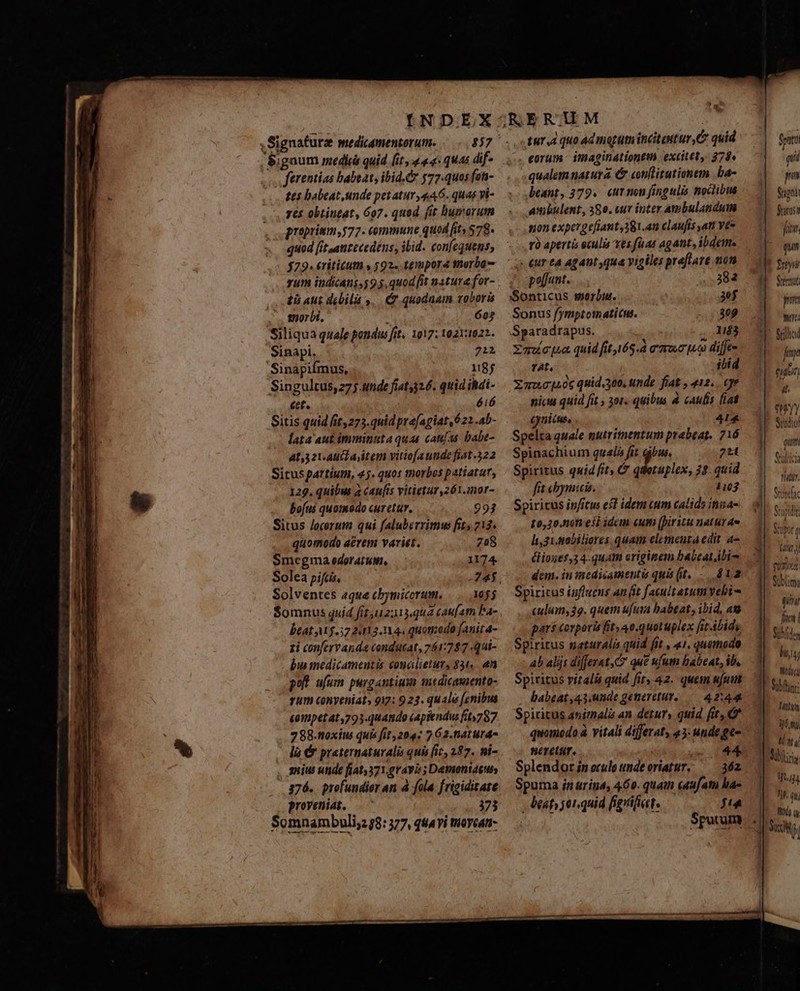 INDEX RERUM
Signaturæ medicamentorum. 857
Signum medicis quid sit, 444. quas dif-
ferentias habeat, ibid. & 577. quos fon-
tes habeat, unde petatur, 446. quas vi-
res obtineat, 607. quod sit humorum
proprium, 577. commune quod sit, 578.
quod sit antecedens, ibid. consequens,
579. criticum, 592. tempora morbo-
rum indicans, 595. quod sit natura for-
tis aut debilis, & quodnam roboris
morbi. 603
Siliqua quale pondus sit, 1017: 1021: 1022.
Sinapi. 722
Sinapismus, 1185
Singultus, 275. unde fiat, 326. quid indi-
cet. 616
Sitis quid sit, 273. quid præsagiat, 622. ab-
lata aut imminuta quas causas habe-
at, 321. aucta, item vitiosa unde fiat. 322
Situs partium, 45. quos morbos patiatur,
129. quibus à causis vitietur, 261. mor-
bosus quomodo curetur. 993
Situs locorum qui saluberrimus sit, 713.
quomodo aërem variet. 708
Smegma odoratum. 1174
Solea piscis. 745
Solventes aquæ chymicorum. 1055
Somnus quid sit, 112: 113. quas causam ha-
beat, 115. 37 2: 113. 114. quomodo sanita-
ti conservandæ conducat, 761: 787. qui-
bus medicamentis concilietur, 831. an
post usum purgantium medicamento-
rum conveniat, 917: 923. qualis senibus
competat, 793. quando capiendus sit, 787
788. noxius quis sit, 204: 762. natura-
lis & præternaturalis quis sit, 287. ni-
mius unde fiat, 371. gravis; Dæmoniacus,
376. profundior an à sola frigiditate
proveniat. 373
Somnambuli, 258: 377, qua vi movean-
tur, à quo ad motum incitentur, & quid
eorum imaginationem excitet, 378.
qualem natura & constitutionem ha-
beant, 379. cur non singulis noctibus
ambulent, 380. cur inter ambulandum
non expergefiant, 381. an clausis, an ve-
rò apertis oculis res suas agant, ibidem.
cur ea agant, qua vigiles præstare non
possunt. 382
Sonticus morbus. 305
Sonus symptomaticus. 309
Sparadrapus. 1183
Σπάσμα quid sit, 165. à σπασμῷ diffe-
rat. ibid
Σπασμὸς quid, 300. unde fiat, 412. cy-
nicus quid sit, 301. quibus à causis fiat
cynicus. 414
Spelta quale nutrimentum præbeat. 716
Spinachium qualis sit cibus. 721
Spiritus quid sit, & quotuplex, 38. quid
sit chymicis. 1103
Spiritus insitus est idem cum calido inna-
to, 30. non est idem cum spiritu natura-
li, 31. nobiliores quam elementa edit a-
ctiones, 34. quam originem habeat, ibi-
dem. in medicamentis quis sit. 812
Spiritus influens an sit facultatum vehi-
culum, 39. quem usum habeat, ibid, an
pars corporis sit, 40. quotuplex sit. ibid.
Spiritus naturalis quid sit, 41. quomodo
ab aliis differat, & quem usum habeat, ib.
Spiritus vitalis quid sit, 42. quem usum
habeat, 43. unde generetur. 42: 44
Spiritus animalis an detur, quid sit, &
quomodo à vitali differat, 43. unde ge-
neretur. 44
Splendor in oculo unde oriatur. 362
Spuma in urina, 460. quam causam ha-
beat, 501. quid significet. 514
Sputum